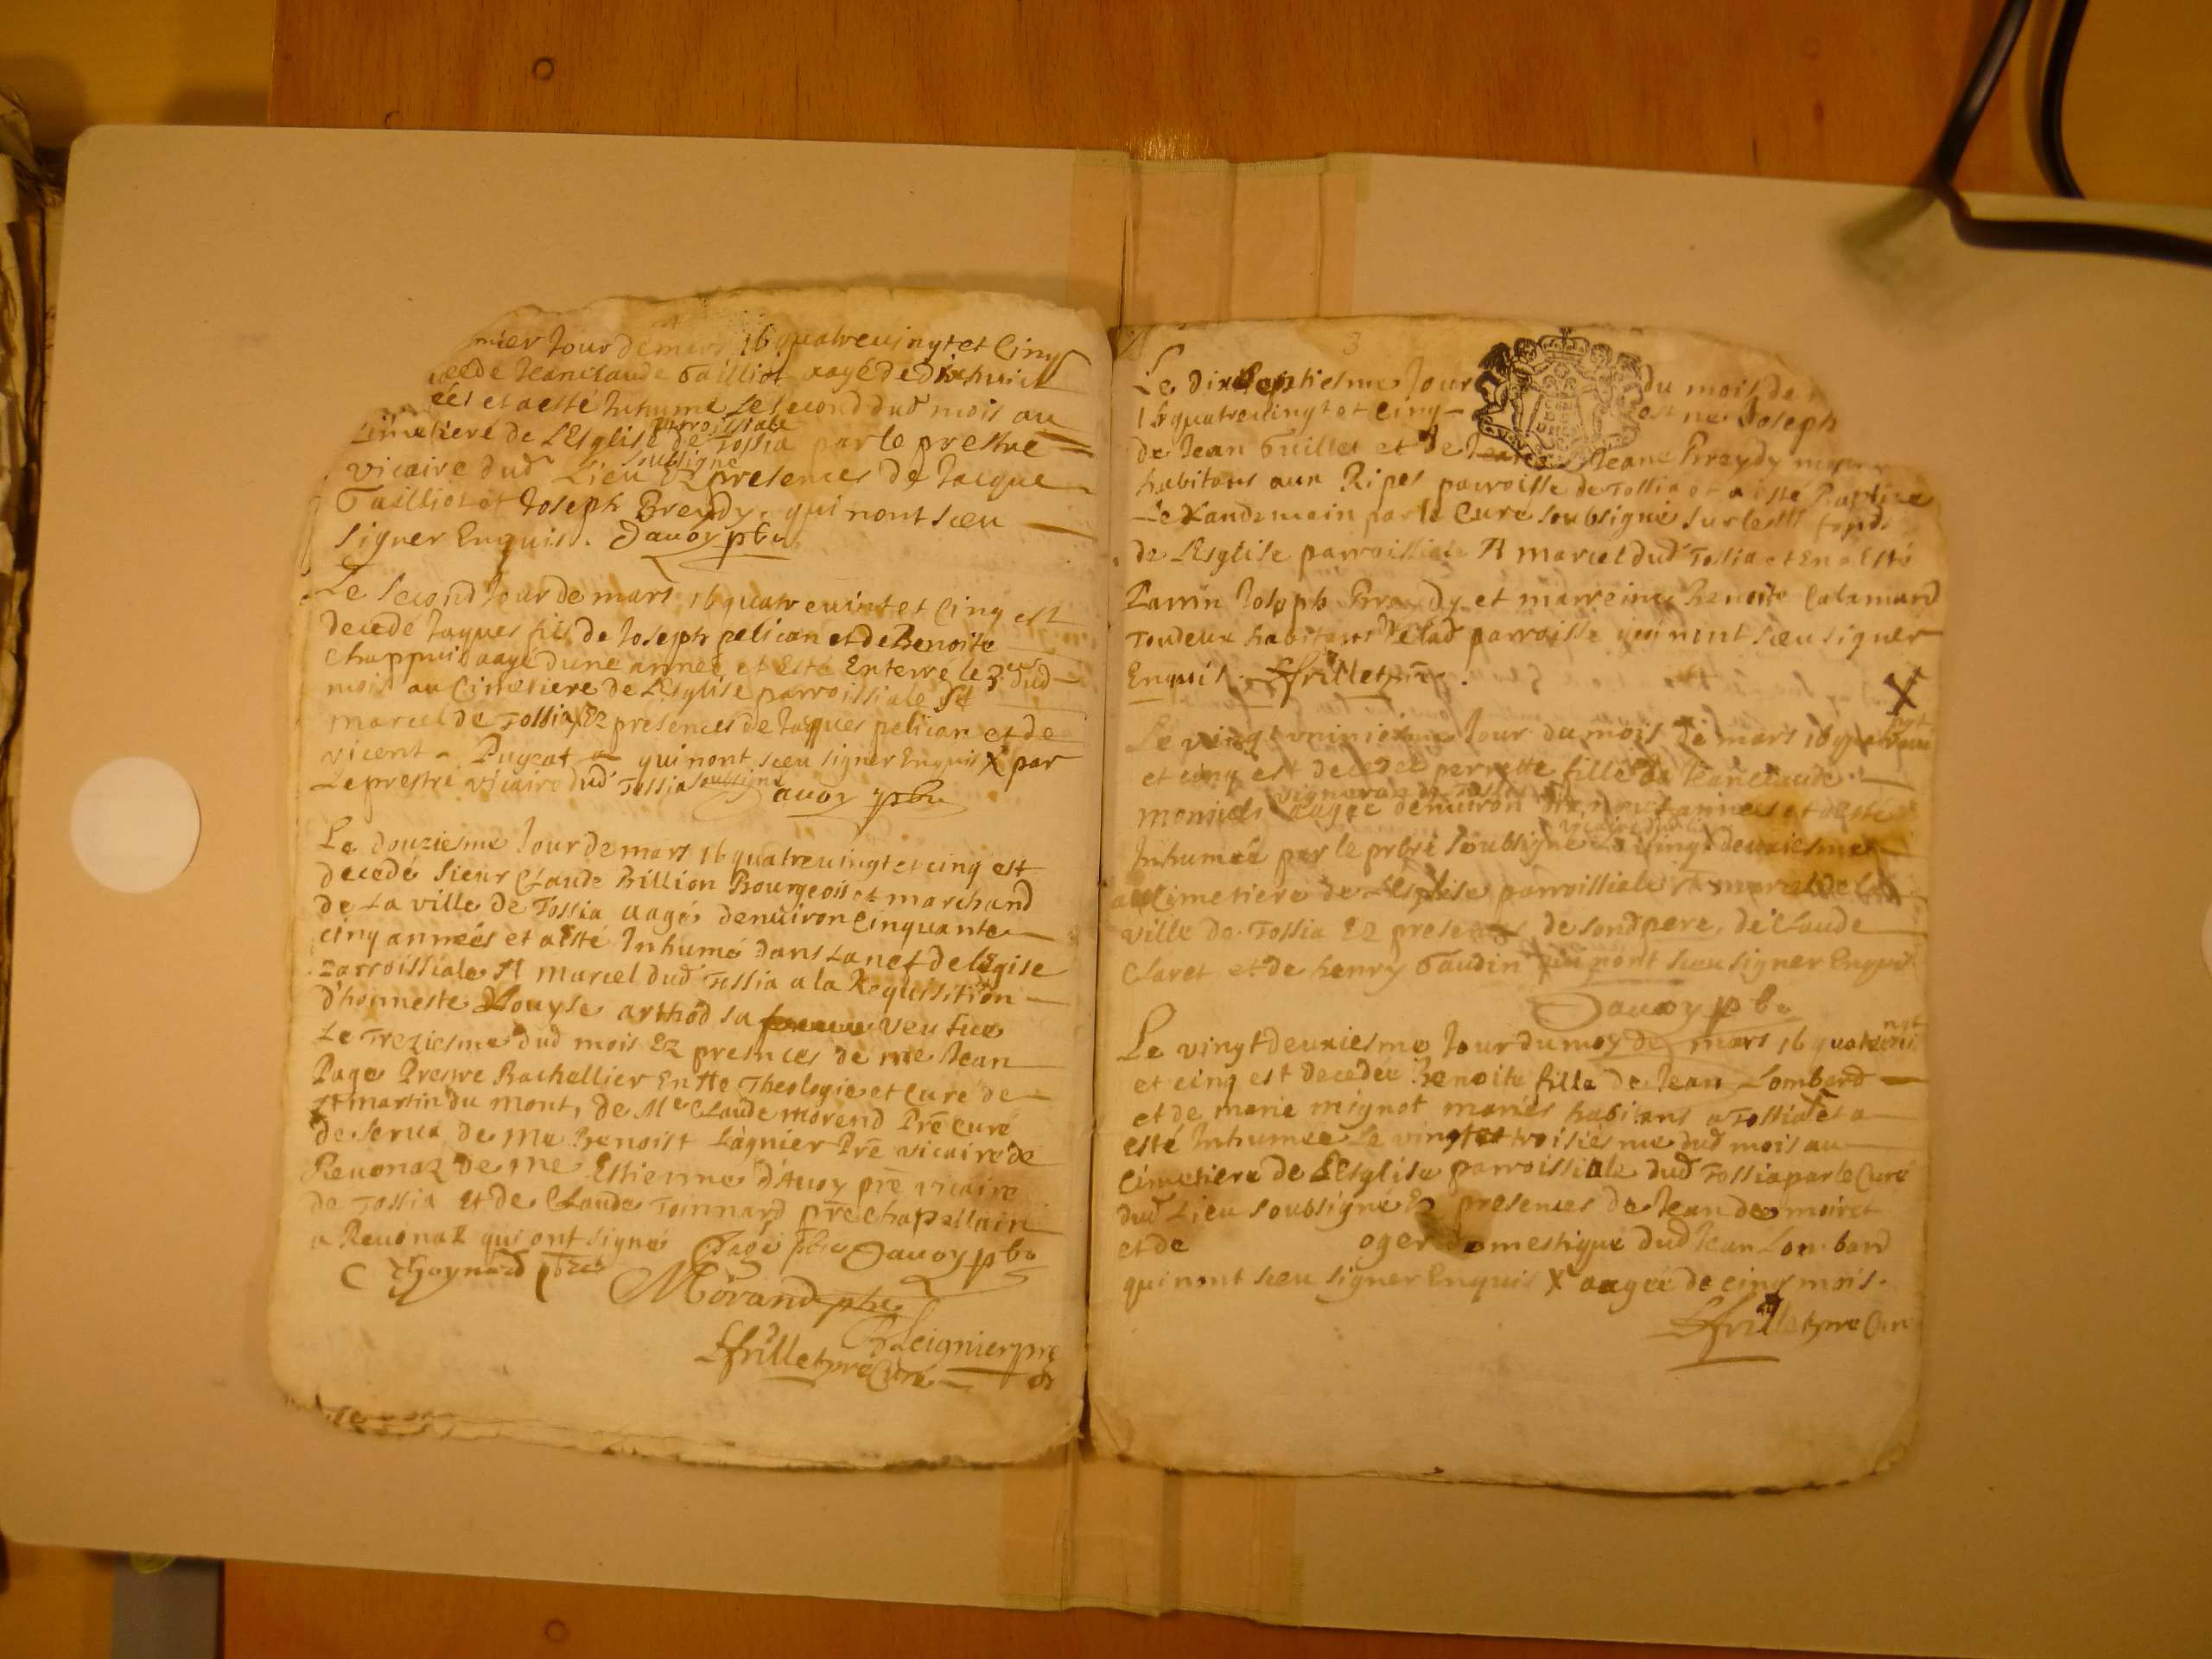 mier Jour de mars 16 quatrevingt et cinq
decede Jeanclaude Tailliot aagé de dixhuict
ées et a esté Inhumé le second dud mois au
parroissiale
Cimetiere de L'Esglise de Tossia par le prestre
soubsigné
vicaire dud Lieu Ez presences de Jacque
Tailliot et Joseph Breydy, qui nont sceu
signer Enquis. Davoy pbr
Le second Jour de mars 16 quatrevint et cinq est
decedé Jaques fils de Joseph pelican et de Benoite
Chappuis aagé dune année et Esté Enterré le 3e dud
mois au Cimetiere de L'Esglise parroissiale St
marcel de Tossia X Ez presences de Jaques pelican et de
vicent Pugeat qui nont sceu signer Enquis X par
Le prestre vicaire dud Tossia soubsigné Davoy pbr
Le douziesme Jour de mars 16 quatrevingt et cinq est
decedé sieur Claude Billion Bourgeois et marchand
de La ville de Tossia aagé denuiron cinquante
cinq années et a esté Inhumé dans La nef de legise
parroissiale St marcel dud Tossia a la Requisition
d'honneste Louyse arthod sa femme veufue
Le Treziesme dud mois Ez presnces de me Jean
Page Prestre Bachellier En Ste Theologie et Curé de
St martin du mont, de Me Claude morend Pre curé
de serua de Me Benoist Lagnier Pre vicaire de
Reuonaz De Me Estienne d'Avoy pre vicaire
de Tossia Et de Claude Toinnard pre chapellain
a Reuonaz qui ont signé Page pbr Davoy pbr
C Thoynard pbre
Morand pbr
B Leignier pre
Ffrillet pre Curé
3
Le dixseptiesme Jour du mois de
16 quatrevingt et cinq est né Joseph
de Jean Guillet et de Jeane Breydy
habitans aux Ripes parroisse de Tossia et a esté Baptizé
Le Landemain par le Curé soubsigné sur les fonds
de L'Esglise parroissiale St marcel dud Tossia et En a esté
Parrin Joseph Breydy et marreine Benoite Calamard
Toudeux habitans de Lad parroisse qui nont sceu signer
Enquis. Ffrillet pre.
X
Le vingt uniniesme Jour du mois de mars 16 quatrevingt
et cinq est decedee perrette fille de Jeanclaude
vigneron de Tossia
moniiets aagee denuiron années et a esté
Inhumée par le prbre soubsigné Le vingt deuxiesme
au Cimetiere de L'Esglise parroissiale St marcel de Lad
ville de Tossia Ez presences de sond pere, de Claude
Claret et de henry Gaudin qui nont sceu signer Enquis
Davoy pbr
Le vingt deuxiesme Jour du moy de mars 16 quatrevingt
et cinq est decedée Benoite fille de Jean Lombard
et de marie mignot mariés habitans a Tossia et a
esté Inhumee Le vingt et troisiesme dud mois au
Cimetiere de L'Esglise parroissiale dud Tossia par le Curé
dud Lieu soubsigné Ez presences de Jean des moiret
et de oger domestique dud Jean Lombard
qui nont sceu signer Enquis X aagée de cinq mois.
Ffrillet pre Cur